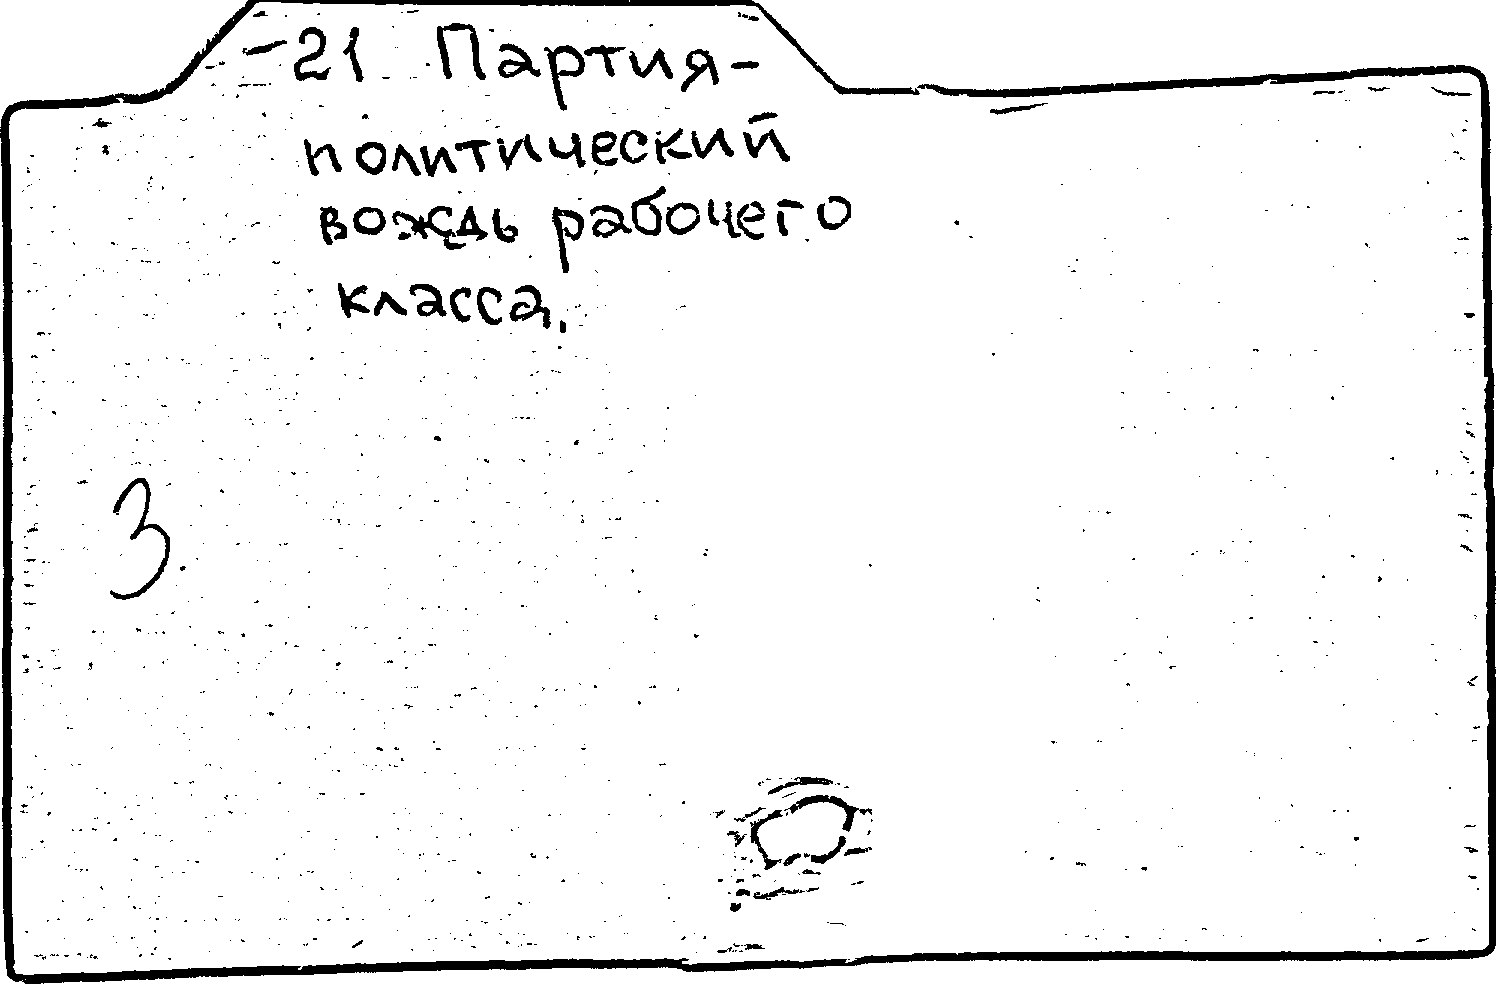 -21 Партия-
политический
вождь рабочего
класса.
3.